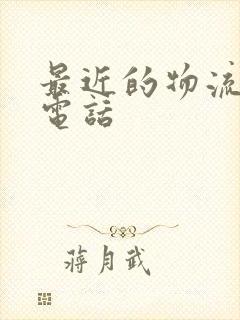 最近的物流
電話
蔣月武